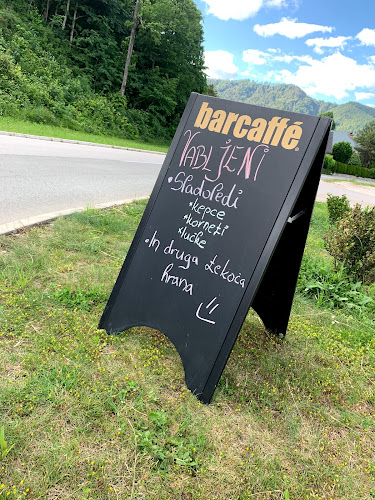 barcaffé®
VABLJENI
•Sladoledi
•kepce
•korneti
•lučke
•In druga ležeča
hrana